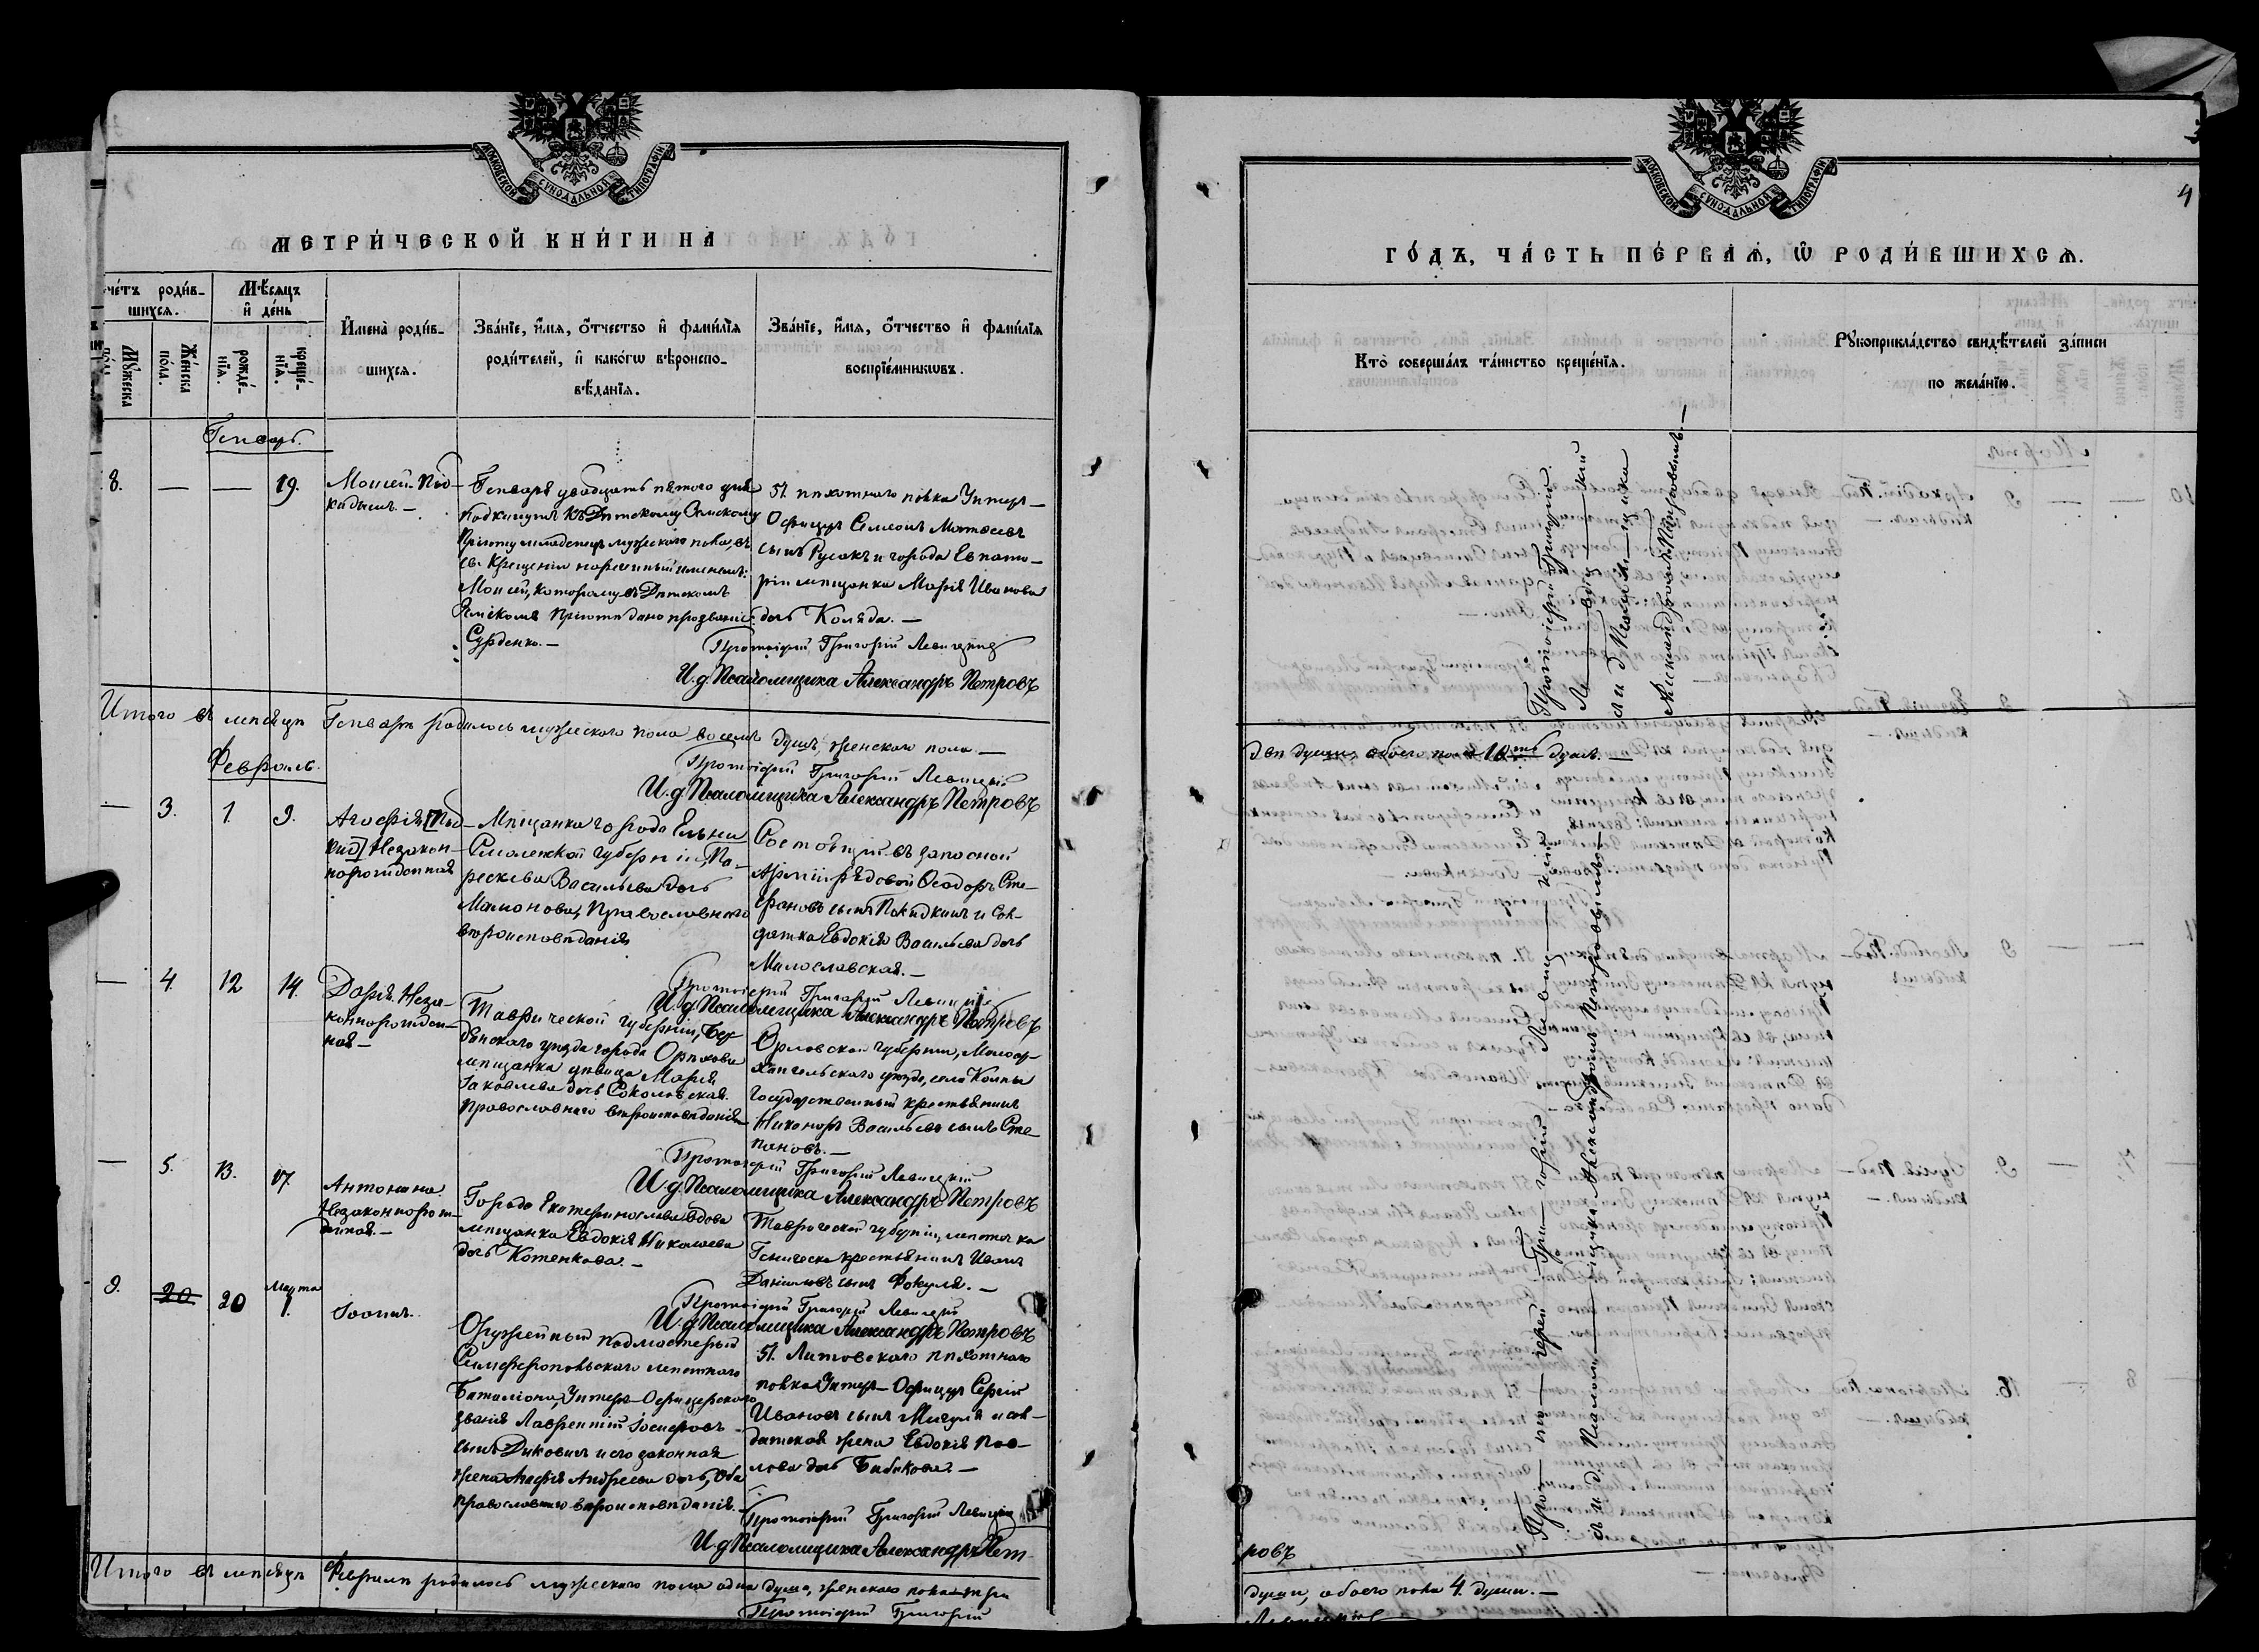 МОСКОВСКОЙ СУНОДАЛЬНОЙ ТИПОГРАФІИ
МЕТРИ́ЧЕСКОЙ КНИ́ГИ НА
счетъ роди́в-
шихся.
Мѣ́сяцъ
и҆ де́нь
Мꙋ́жеска
по́ла.
Же́нска
по́ла.
рожде́-
нїѧ.
креще́-
нїѧ.
И҆мена̀ роди́в-
шихся.
Зва́нїе, и҆́мѧ, ѻ҆́тчество и҆ фамилїѧ
роди́телей, и҆ како́гѡ вѣроиспо-
вѣ́данїѧ.
Зва́нїе, и҆́мѧ, ѻ҆́тчество и҆ фами́лїѧ
воспрїе́мникѡвъ.
Генварь.
8. — — 19.
Моисей. Под-
кидышъ. —
Генваря двадцать пятого дня
подкинутъ къ Дѣтскому Земскому
Пріюту младенецъ мужескаго пола, въ
св. Крещеніи нареченный именемъ:
Моисей, которому въ Дѣтскомъ
Земскомъ Пріютѣ дано прозваніе
Сурденко. —
51. пѣхотнаго полка Унтеръ-
Офицеръ Семеонъ Матѳеевъ
сынъ Русакъ и города Евпато-
ріи мѣщанка Марія Иванова
дочь Коляда. —
Протоіерей Григорій Левицкій
И. д. Псаломщика Александръ Петровъ
Итого въ мѣсяцѣ Генварѣ родилось мужескаго пола восемь душъ, женскаго пола —
Протоіерей Григорій Левицкій
И. д. Псаломщика Александръ Петровъ
Февраль.
— 3. 1. 9.
Агафія [Под-
кид] Незакон-
норожденная
Мѣщанка города Ельни
Смоленской губерніи, Па-
раскева Васильева дочь
Мамонова, Православнаго
вѣроисповѣданія
Состоящій въ запасной
Арміи рядовой Ѳеодоръ Сте-
фановъ сынъ Покидкинъ и Сол-
датка Евдокія Васильева дочь
Милославская. —
Протоіерей Григорій Левицкій
И. д. Псаломщика Александръ Петровъ
— 4. 12 14.
Дарія. Неза-
коннорожден-
ная —
Таврической губерніи, Бер-
дянскаго уѣзда города Орѣхова
мѣщанка дѣвица Марія
Іаковлева дочь Соколовская.
Православнаго вѣроисповѣданія
Орловской губерніи, Малоар-
хангельскаго уѣзда, села Колпы
Государственный крестьянинъ
Никаноръ Васильевъ сынъ Сте-
пановъ. —
Протоіерей Григорій Левицкій
И. д. Псаломщика Александръ Петровъ
— 5. 13. 17.
Антонина.
Незаконнорож-
денная. —
Города Екатеринослава вдова
мѣщанка Евдокія Николаева
дочь Котенкова. —
Таврической губерніи, мѣстечка
Геническа крестьянинъ Иванъ
Даніиловъ сынъ Фокуля. —
Протоіерей Григорій Левицкій
И. д. Псаломщика Александръ Петровъ
9. 20 20 Марта 1.
Іоаннъ.
Оружейный подмастерый
Симферопольскаго мѣстнаго
Баталіона, Унтеръ-Офицерскаго
званія Лаврентій Іосифовъ
сынъ Диковичъ и его законная
жена Агафія Андреева дочь, Оба
православнаго вѣроисповѣданія. —
51. Литовскаго пѣхотнаго
полка Унтеръ-Офицеръ Сергій
Ивановъ сынъ Мигуля и сол-
датская жена Евдокія Пав-
лова дочь Бабикова. —
Протоіерей Григорій Левицкій
И. д. Псаломщика Александръ Пет-
Итого въ мѣсяцѣ Февралѣ родилось мужескаго пола одна душа, женскаго пола три
Протоіерей Григорій
МОСКОВСКОЙ СУНОДАЛЬНОЙ ТИПОГРАФІИ
4
ГО́ДЪ, ЧА́СТЬ ПЕ́РВАѦ, Ѡ҆ РОДИ́ВШИХСѦ.
Кто̀ соверша́лъ та́инство креще́нїѧ.
Рꙋкоприкла́дство свидѣ́телей за́писи
по жела́нїю.
Протоіерей Григорій
Левицкій
съ и. д. Псаломщика
Александромъ Петровымъ. —
двѣ души, обоего пола 10ть душъ. —
Протоіерей Григорій Левицкій
съ и. д. Псаломщика Александромъ Петровымъ —
ровъ
души, обоего пола 4. души. —
Левицкій